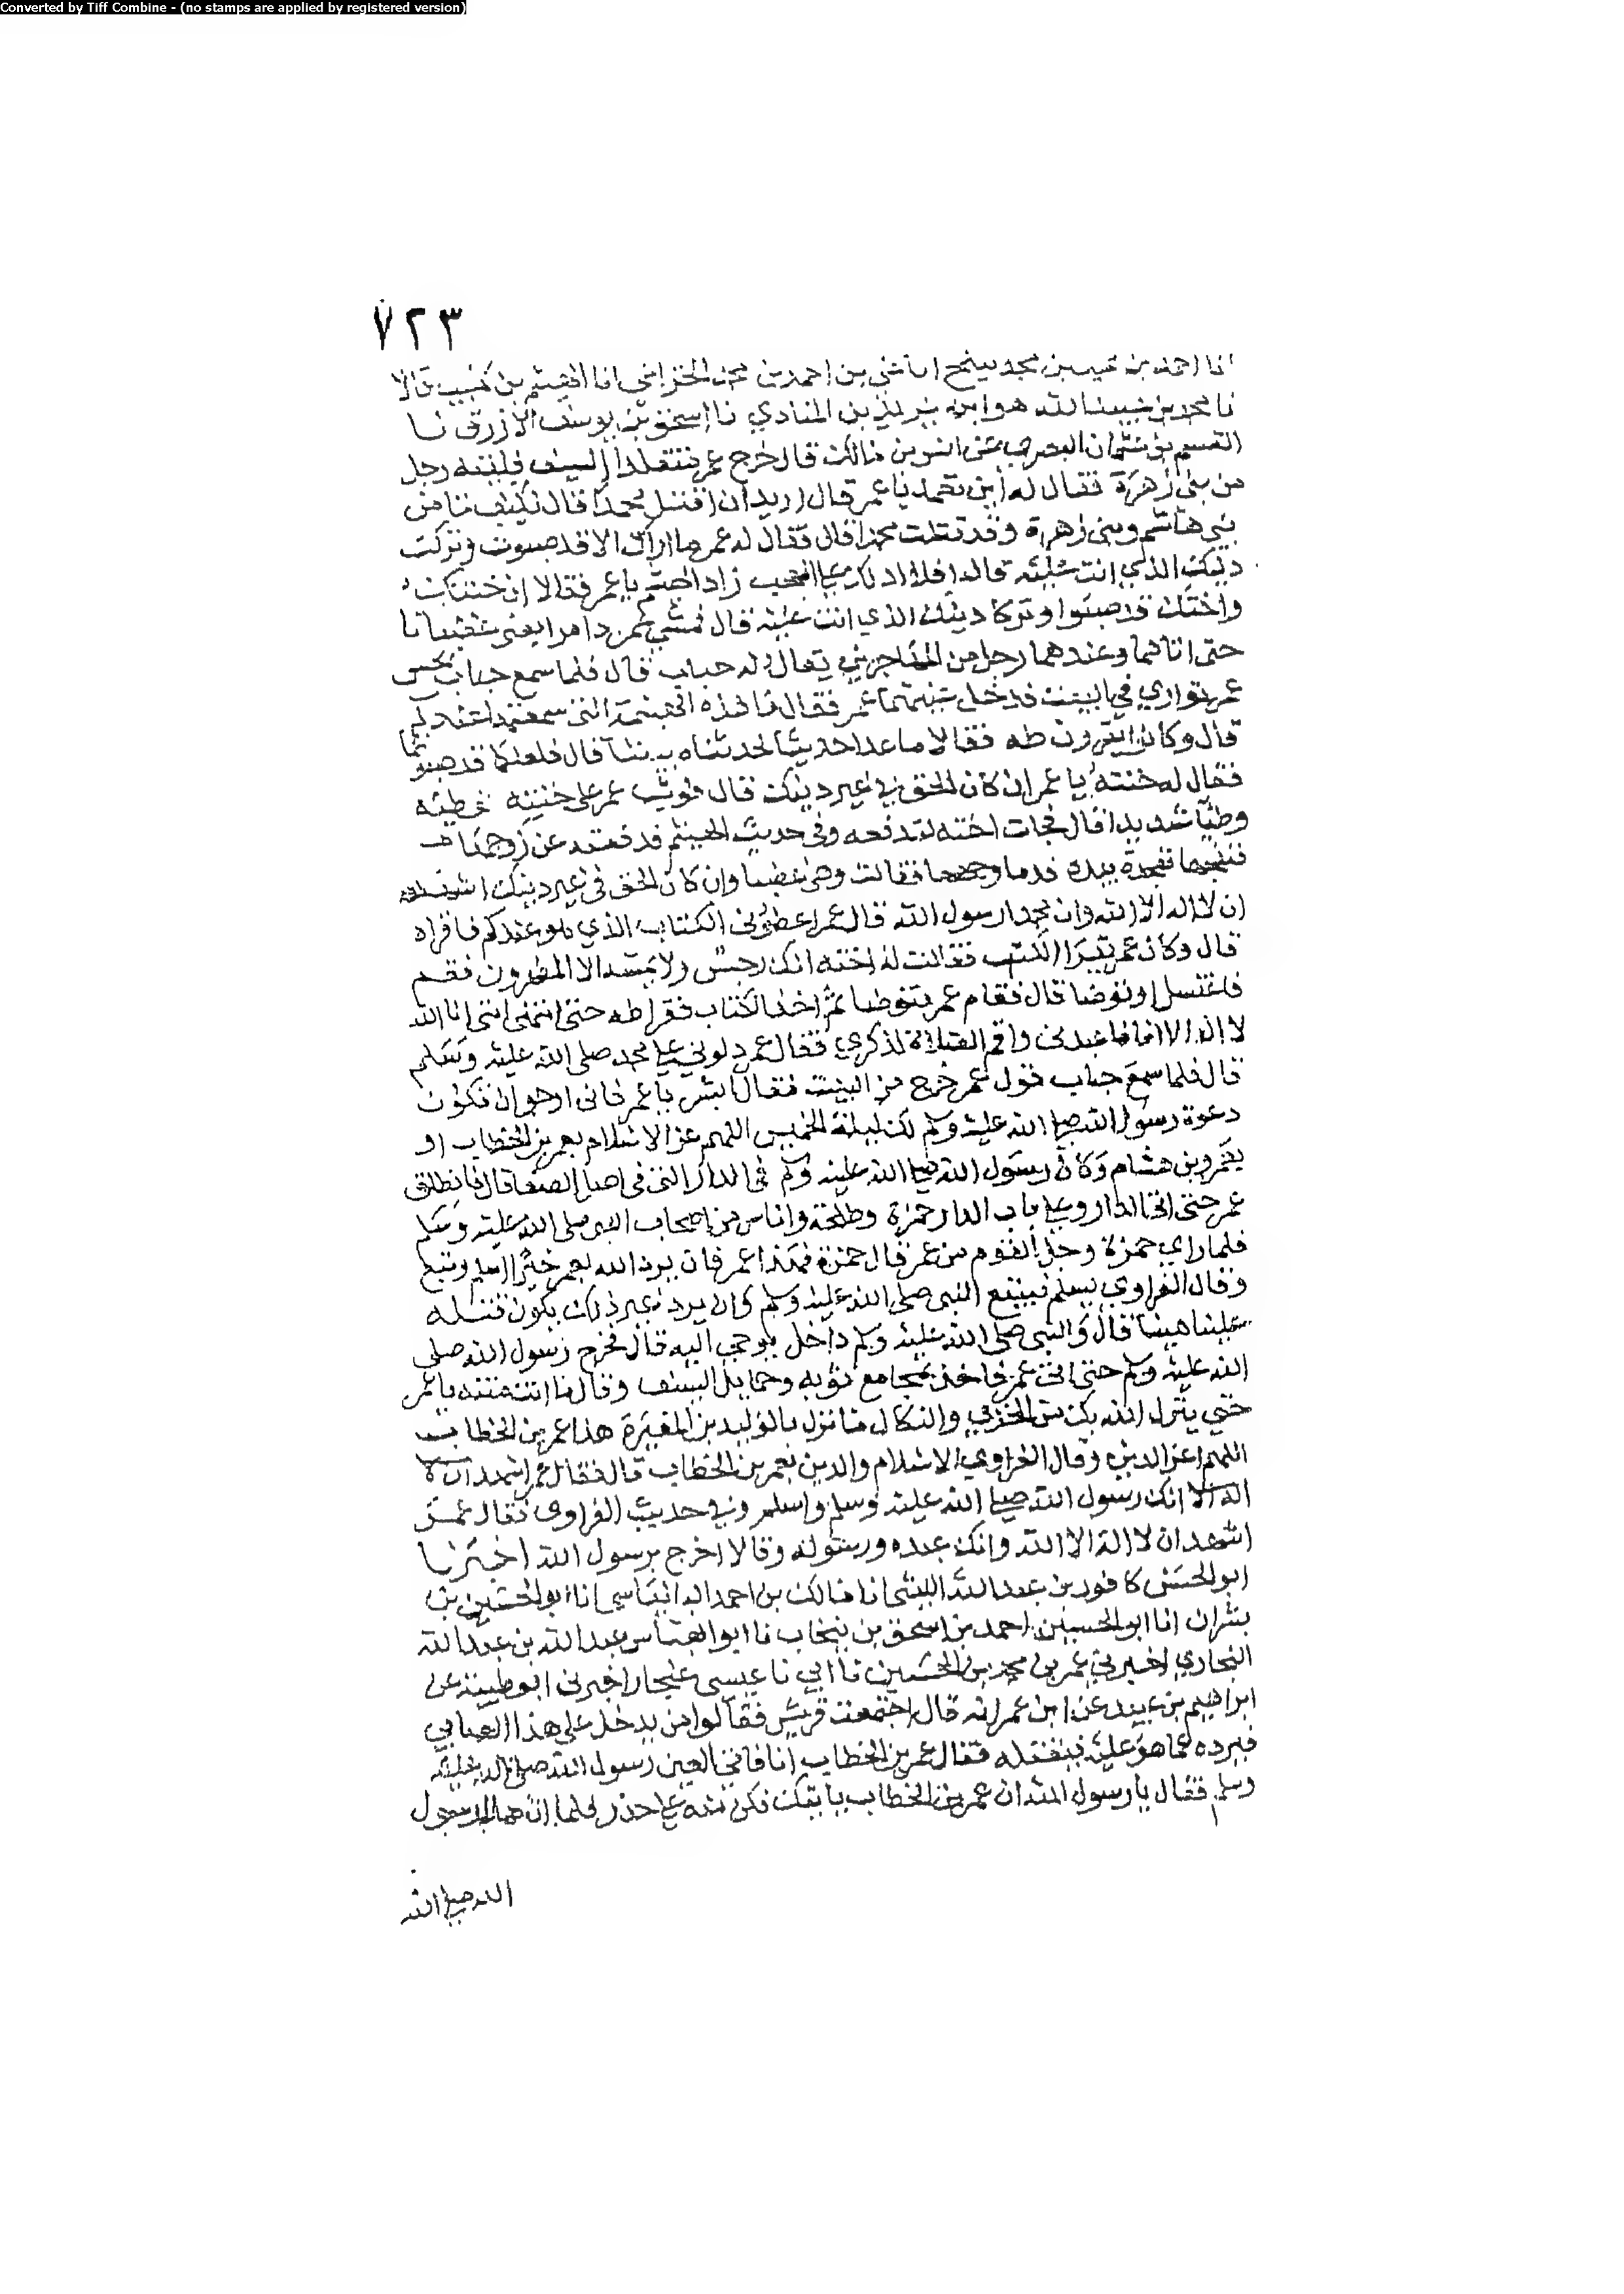 Converted by Tiff Combine - (no stamps are applied by registered version)
٧٢٣
انا احمد بن عبيد بن محمد انا علي بن احمد بن محمد الخزاعي انا الهيثم بن كليب قالا
نا محمد بن عبيد الله هو ابن يزيد بن المنادي نا اسحق بن يوسف الازرق نا
القسم بن عثمان البصري عن انس بن مالك قال خرج عمر متقلدا السيف فلقيه رجل
من بني زهرة فقال له اين تعمد يا عمر قال اريد ان اقتل محمدا قال فكيف تامن
بني هاشم وبني زهرة وقد قتلت محمدا قال فقال له عمر ما اراك الا قد صبوت وتركت
دينك الذي انت عليه قال افلا ادلك على العجب زاد الهيثم يا عمر فقالا ان ختنك
واختك قد صبوا وتركا دينك الذي انت عليه قال فمشى عمر ذامرا يعني غضبانا
حتى اتاهما وعندهما رجل من المهاجرين يقال له خباب قال فلما سمع خباب بحس
عمر توارى في البيت فدخل عليهما عمر فقال ما هذه الهينمة التي سمعتها عندكم
قال وكانوا يقرون طه فقالا ما عدا حديثا تحدثناه بيننا قال فلعلكما قد صبوتما
فقال له ختنه يا عمر ان كان الحق في غير دينك قال فوثب عمر على ختنه فوطئه
وطئا شديدا قال فجات اخته لتدفعه وفي حديث الهيثم فدفعته عن زوجها
فنفحها نفحة بيده فدما وجهها فقالت وهي غضبا وان كان الحق في غير دينك اشهد
ان لا اله الا الله وان محمدا رسول الله قال عمر اعطوني الكتاب الذي هو عندكم فاقراه
قال وكان عمر يقرا الكتب فقالت له اخته انك رجس ولا يمسه الا المطهرون فقم
فاغتسل او توضا قال فقام عمر فتوضا ثم اخذ الكتاب فقرا طه حتى انتهى انني انا الله
لا اله الا انا فاعبدني واقم الصلاة لذكري فقال عمر دلوني على محمد صلى الله عليه وسلم
قال فلما سمع خباب قول عمر خرج من البيت فقال ابشر يا عمر فاني ارجو ان تكون
دعوة رسول الله صلى الله عليه وسلم لك ليلة الخميس اللهم عز الاسلام بعمر بن الخطاب او
بعمرو بن هشام وكان رسول الله صلى الله عليه وسلم في الدار التي في اصل الصفا قال فانطلق
عمر حتى اتى الدار وعلى باب الدار حمزة وطلحة واناس من اصحاب النبي صلى الله عليه وسلم
فلما راي حمزة وجل القوم من عمر قال حمزة فهذا عمر فان يرد الله بعمر خيرا يسلم ويتبع
وقال الفراوي يسلم فيتبع النبي صلى الله عليه وسلم وان يرد غير ذلك يكون قتله
علينا هينا قال والنبي صلى الله عليه وسلم داخل يوحى اليه قال فخرج رسول الله صلى
الله عليه وسلم حتى اتى عمر فاخذ بمجامع ثوبه وحمايل السيف وقال ما انت منته يا عمر
حتى ينزل الله بك من الخزي والنكال ما نزل بالوليد بن المغيرة هذا عمر بن الخطاب
اللهم اعز الدين وقال الفراوي الاسلام والدين بعمر بن الخطاب قال فقال عمر اشهد ان لا
اله الا انك رسول الله صلى الله عليه وسلم واسلم وفي حديث الفراوي فقال عمر
اشهد ان لا اله الا الله وانك عبده ورسوله وقالا اخرج يرسول الله اخبرنا
ابو الحسن كافور بن عبد الله الليثي انا مالك بن احمد البانياسي انا ابو الحسين بن
بشران انا ابو الحسين احمد بن اسحق بن نيخاب نا ابو العباس عبد الله بن عبد الله
البخاري اخبرني عمر بن محمد بن الحسين نا ابي نا عيسى غنجار اخبرني ابو طيبة عن
ابراهيم بن عبيد عن ابن عمر انه قال اجتمعت قريش فقالوا من يدخل على هذا الصابي
فيرده عما هو عليه فيقتله فقال عمر بن الخطاب انا فاتى العين رسول الله صلى الله عليه
وسلم فقال يا رسول الله ان عمر بن الخطاب ياتيك فكن منه على حذر فلما ان صلى رسول
الله صلى الله